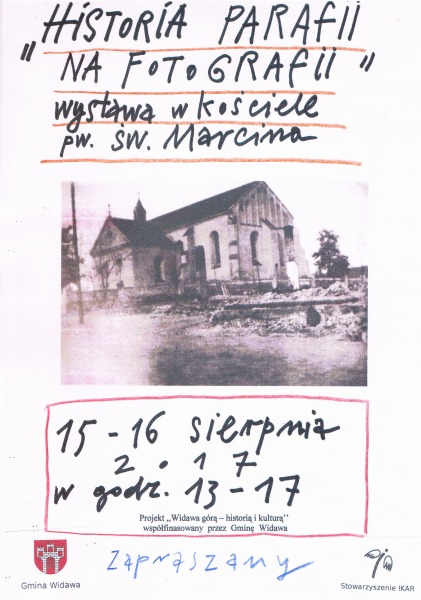 „HISTORIA PARAFII
NA FOTOGRAFII”
wystawa w kościele
pw. św. Marcina
15-16 sierpnia
2.17
w godz. 13-17
Projekt „Widawa górą – historią i kulturą”
współfinasowany przez Gminę Widawa
Zapraszamy
Gmina Widawa
Stowarzyszenie IKAR